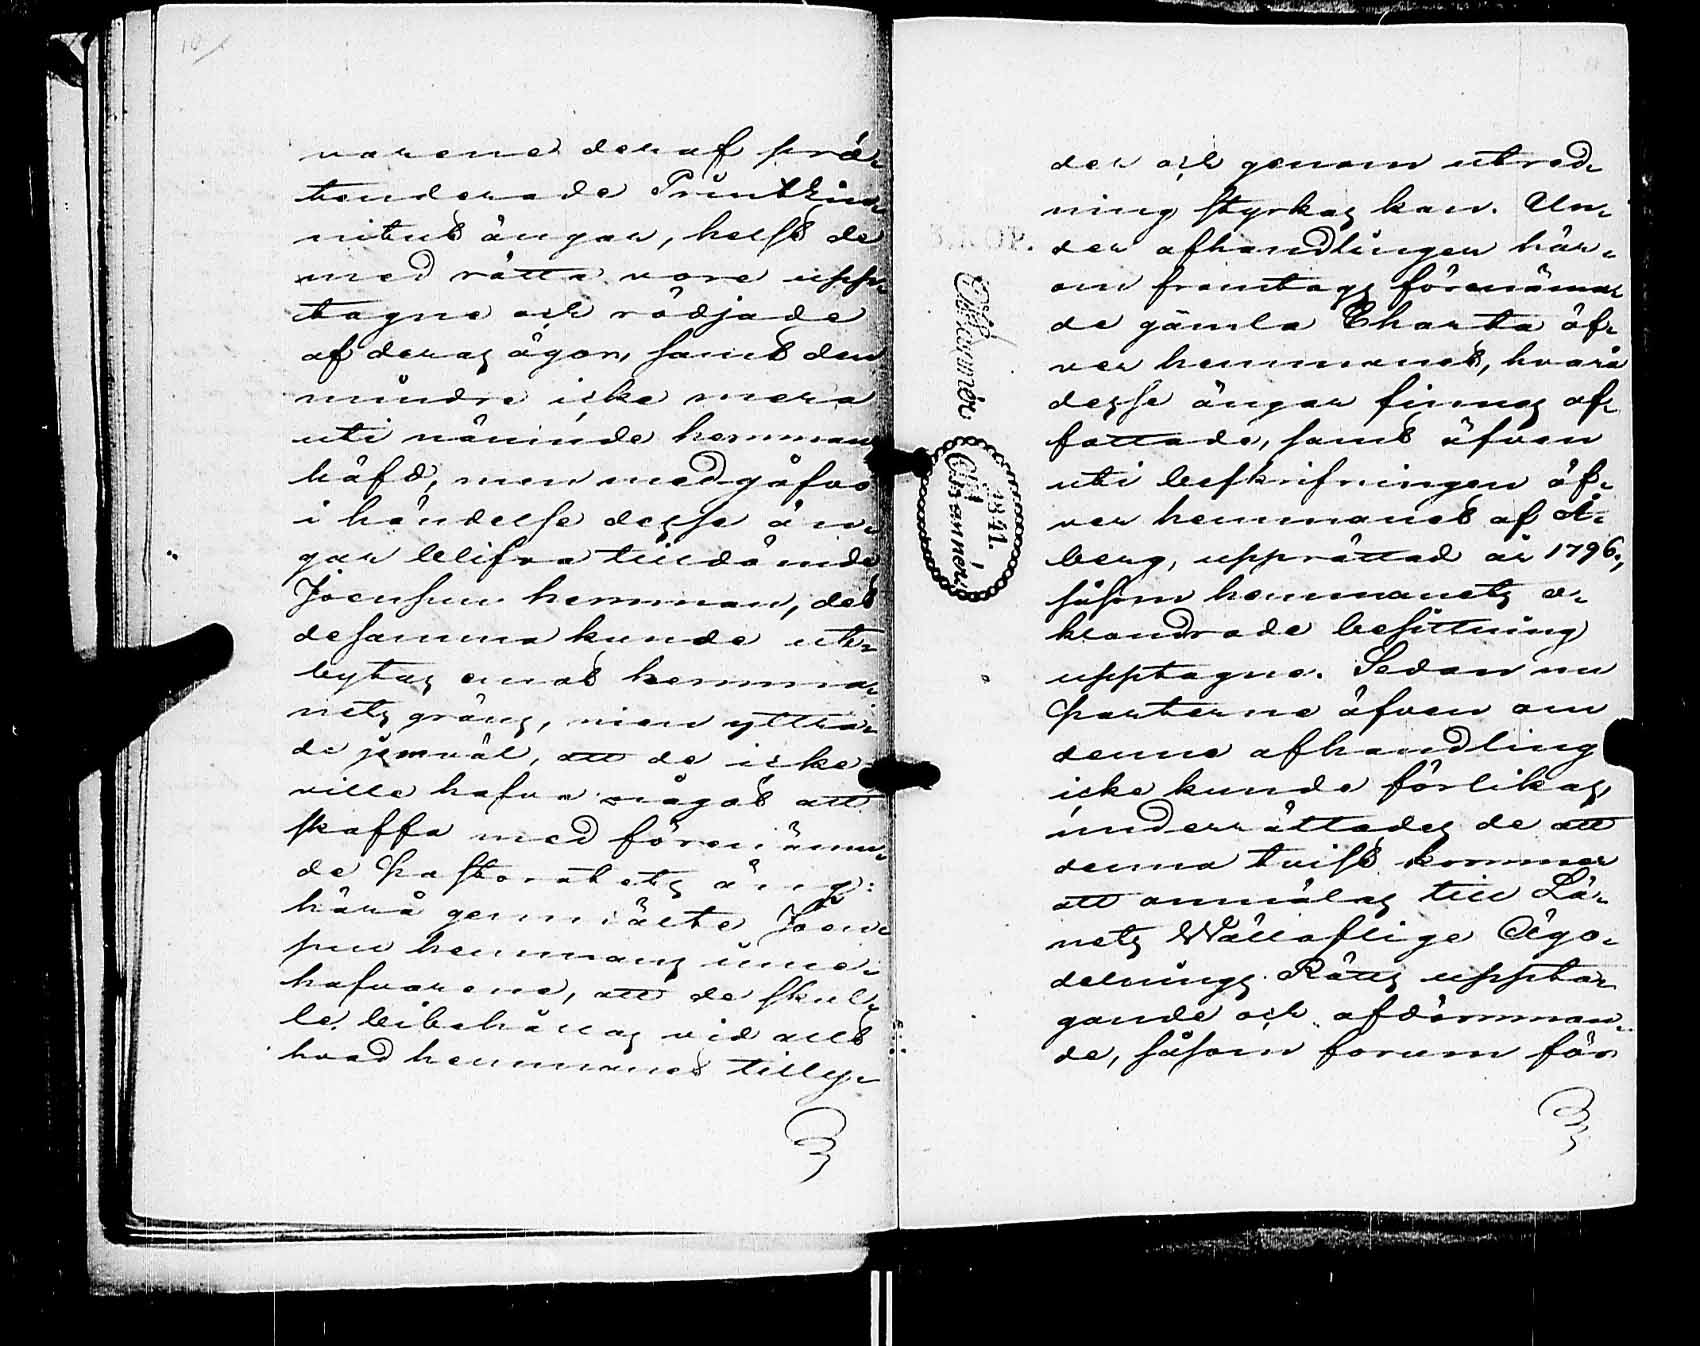 10
varene deraf præ-
tenderade
nitut ängar, helst de
med rätta vore upp-
tagne och rödjade
af deras ägor, samt den
mindre icke mera
uti nämnde hemmans
häfd, men medgåfvo
i händelse desse än-
gar blifva tilldömde
Joensuu hemman, det
desamma kunde ut-
bytas emot hemma-
nets gräns, men yttra-
de jemväl, att de icke
ville hafva något att
skaffa med förenämn-
de Pastoratets äng:
härå genmälte Joen-
suu hemmans inne-
hafvarene, att de skul-
le bibehållas vid allt
hvad hemmanet tillhö-
der och genom utred-
ning styrkas kan. Un-
der afhandlingen här-
om framtogs förenämn-
de gamla Charta öf-
ver hemmanet, hvarå
desse ängar finnas af-
fattade, samt äfven
uti beskrifningen öf-
ver hemmanet af Å-
berg, upprättad år 1796,
såsom hemmanets o-
klandrade besittning
upptagne. Sedan nu
Parterne äfven om
denne afhandling
icke kunde förlikas,
underrättades de att
denna tvist kommer
att anmälas till Lä-
nets Wällofliga Ägo-
delnings Rätts uppta-
gande och afdömman-
de, såsom forum för
1841.